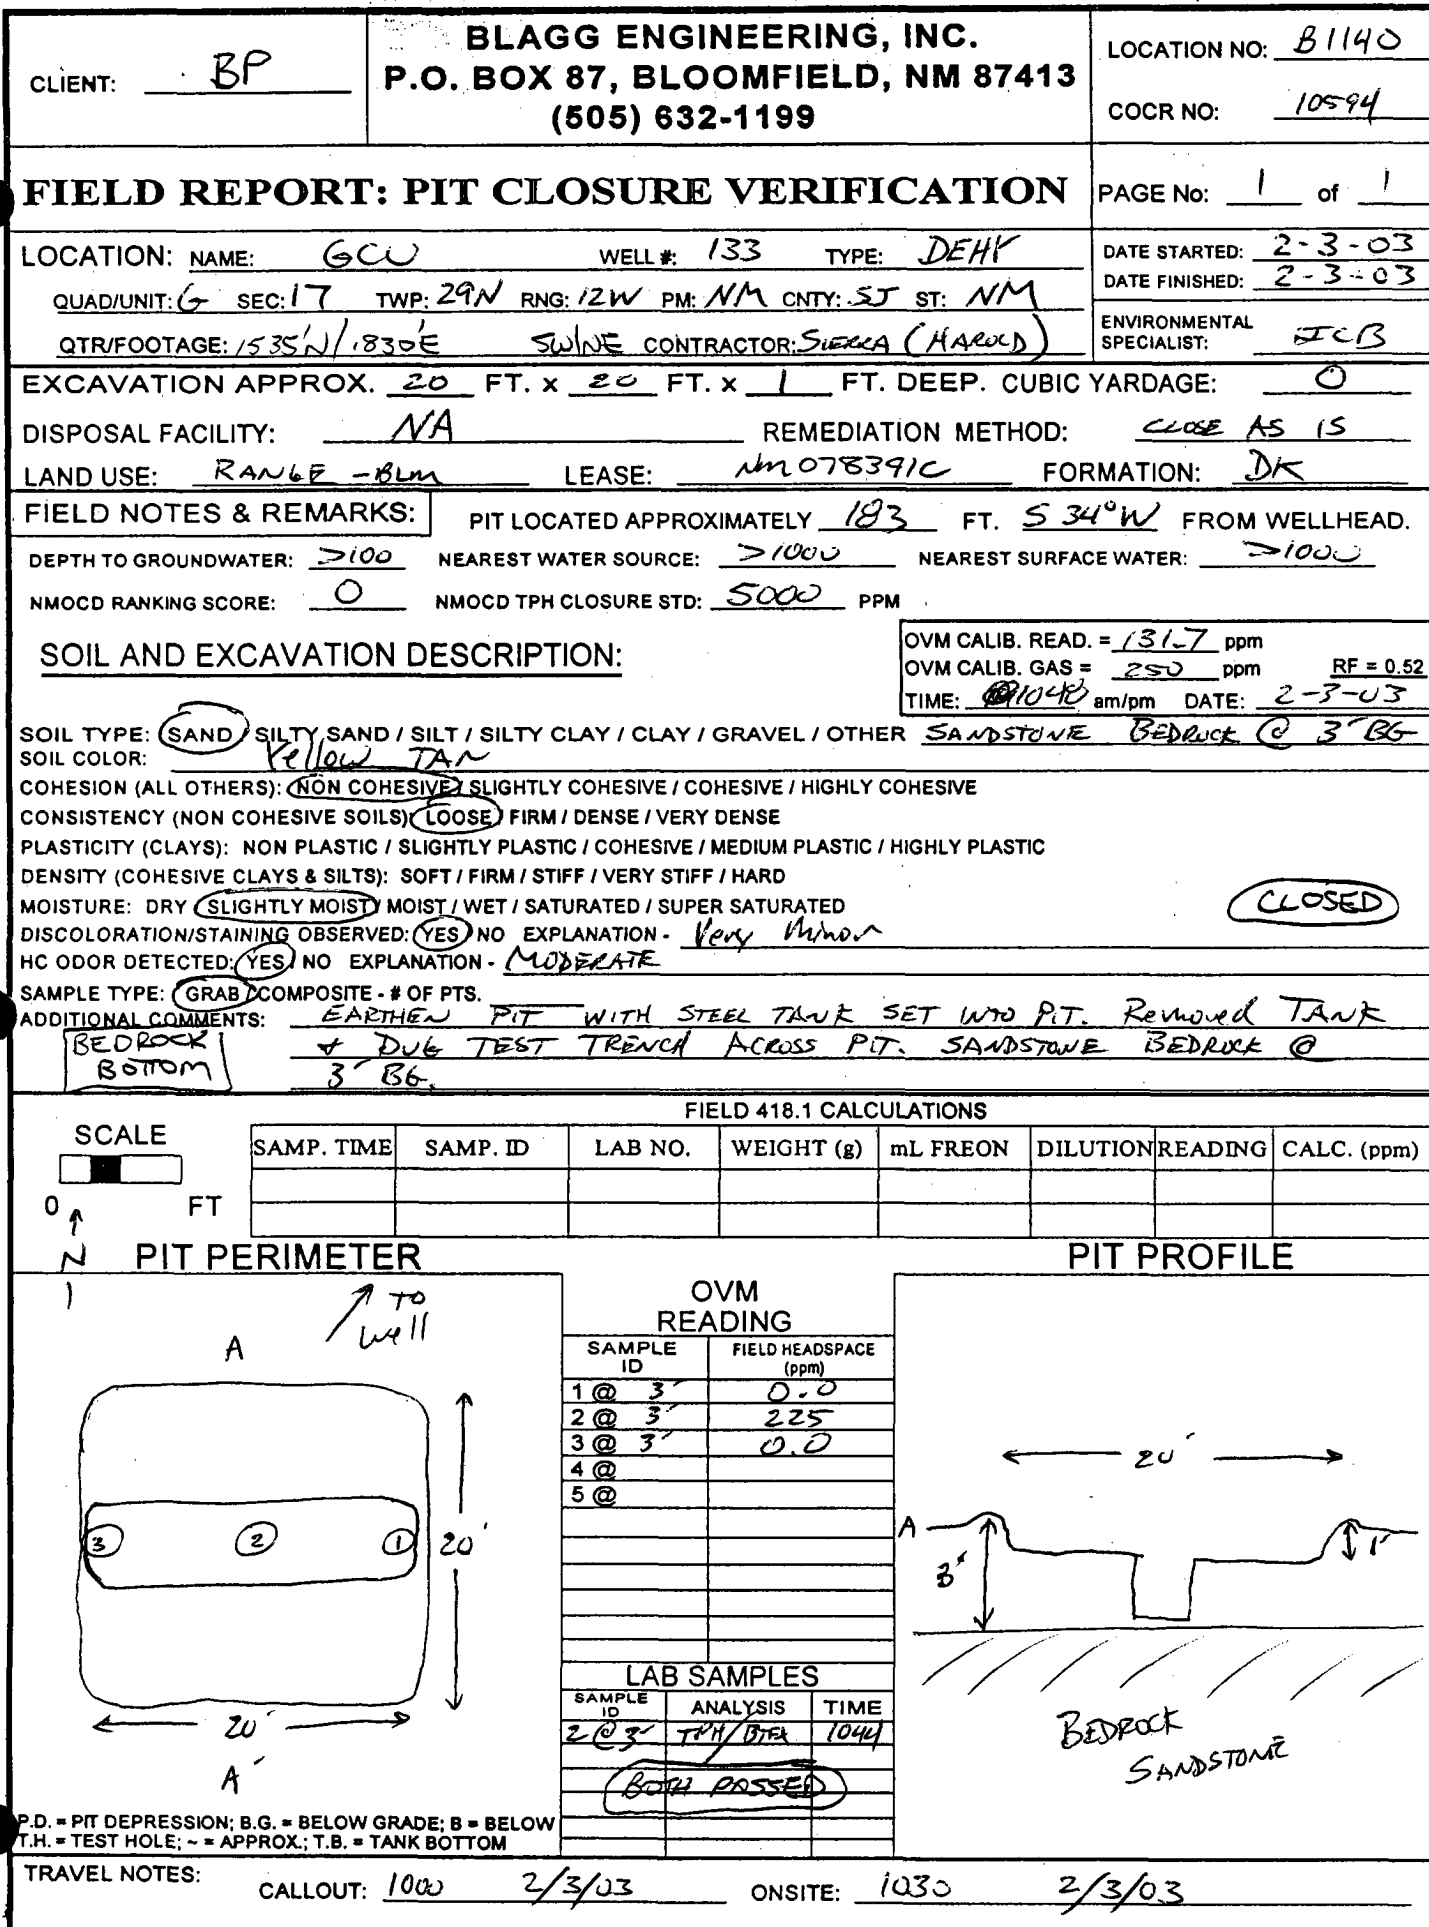 CLIENT: BP
BLAGG ENGINEERING, INC.
P.O. BOX 87, BLOOMFIELD, NM 87413
(505) 632-1199
LOCATION NO: B1140
COCR NO: 10594
FIELD REPORT: PIT CLOSURE VERIFICATION
PAGE No: 1 of 1
LOCATION: NAME: GCU WELL #: 133 TYPE: DEHY
DATE STARTED: 2-3-03
DATE FINISHED: 2-3-03
QUAD/UNIT: G SEC: 17 TWP: 29N RNG: 12W PM: NM CNTY: SJ ST: NM
QTR/FOOTAGE: 1535'N/1830'E SW/NE CONTRACTOR: SIERRA (HAROLD)
ENVIRONMENTAL
SPECIALIST: JCB
EXCAVATION APPROX. 20 FT. x 20 FT. x 1 FT. DEEP. CUBIC YARDAGE: 0
DISPOSAL FACILITY: NA REMEDIATION METHOD: CLOSE AS IS
LAND USE: RANGE - BLM LEASE: NM078391C FORMATION: DK
FIELD NOTES & REMARKS: PIT LOCATED APPROXIMATELY 183 FT. S 34° W FROM WELLHEAD.
DEPTH TO GROUNDWATER: >100 NEAREST WATER SOURCE: >1000 NEAREST SURFACE WATER: >1000
NMOCD RANKING SCORE: 0 NMOCD TPH CLOSURE STD: 5000 PPM
SOIL AND EXCAVATION DESCRIPTION:
OVM CALIB. READ. = 131.7 ppm
OVM CALIB. GAS = 250 ppm RF = 0.52
TIME: 1040 am/pm DATE: 2-3-03
SOIL TYPE: SAND / SILTY SAND / SILT / SILTY CLAY / CLAY / GRAVEL / OTHER SANDSTONE BEDROCK @ 3' BG
SOIL COLOR: Yellow TAN
COHESION (ALL OTHERS): NON COHESIVE / SLIGHTLY COHESIVE / COHESIVE / HIGHLY COHESIVE
CONSISTENCY (NON COHESIVE SOILS): LOOSE / FIRM / DENSE / VERY DENSE
PLASTICITY (CLAYS): NON PLASTIC / SLIGHTLY PLASTIC / COHESIVE / MEDIUM PLASTIC / HIGHLY PLASTIC
DENSITY (COHESIVE CLAYS & SILTS): SOFT / FIRM / STIFF / VERY STIFF / HARD
MOISTURE: DRY / SLIGHTLY MOIST / MOIST / WET / SATURATED / SUPER SATURATED
CLOSED
DISCOLORATION/STAINING OBSERVED: YES / NO EXPLANATION - Very Minor
HC ODOR DETECTED: YES / NO EXPLANATION - MODERATE
SAMPLE TYPE: GRAB / COMPOSITE - # OF PTS.
ADDITIONAL COMMENTS: EARTHEN PIT WITH STEEL TANK SET INTO PIT. Removed TANK
BEDROCK
BOTTOM
& DUG TEST TRENCH ACROSS PIT. SANDSTONE BEDROCK @
3' BG.
FIELD 418.1 CALCULATIONS
SCALE
0 FT
SAMP. TIME SAMP. ID LAB NO. WEIGHT (g) mL FREON DILUTION READING CALC. (ppm)
N
PIT PERIMETER
PIT PROFILE
TO
well
A
3 2 1
20'
20'
A'
OVM
READING
SAMPLE ID FIELD HEADSPACE (ppm)
1 @ 3' 0.0
2 @ 3' 225
3 @ 3' 0.0
4 @
5 @
LAB SAMPLES
SAMPLE ID ANALYSIS TIME
2 @ 3' TPH/BTEX 1044
BOTH PASSED
20'
A
3'
1'
BEDROCK
SANDSTONE
P.D. = PIT DEPRESSION; B.G. = BELOW GRADE; B = BELOW
T.H. = TEST HOLE; ~ = APPROX.; T.B. = TANK BOTTOM
TRAVEL NOTES: CALLOUT: 1000 2/3/03 ONSITE: 1030 2/3/03